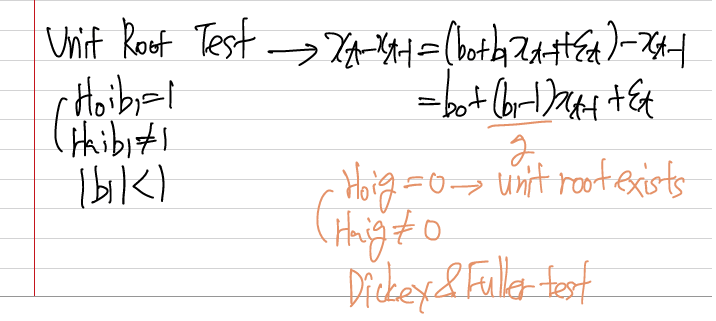 Unit Root Test → xt-xt-1=(b0+b1xt-1+εt)-xt-1
H0:b1=1
=b0+(b1-1)xt-1+εt
Ha:b1≠1
g
|b1|<1
H0:g=0→ unit root exists
Ha:g≠0
Dickey & Fuller test